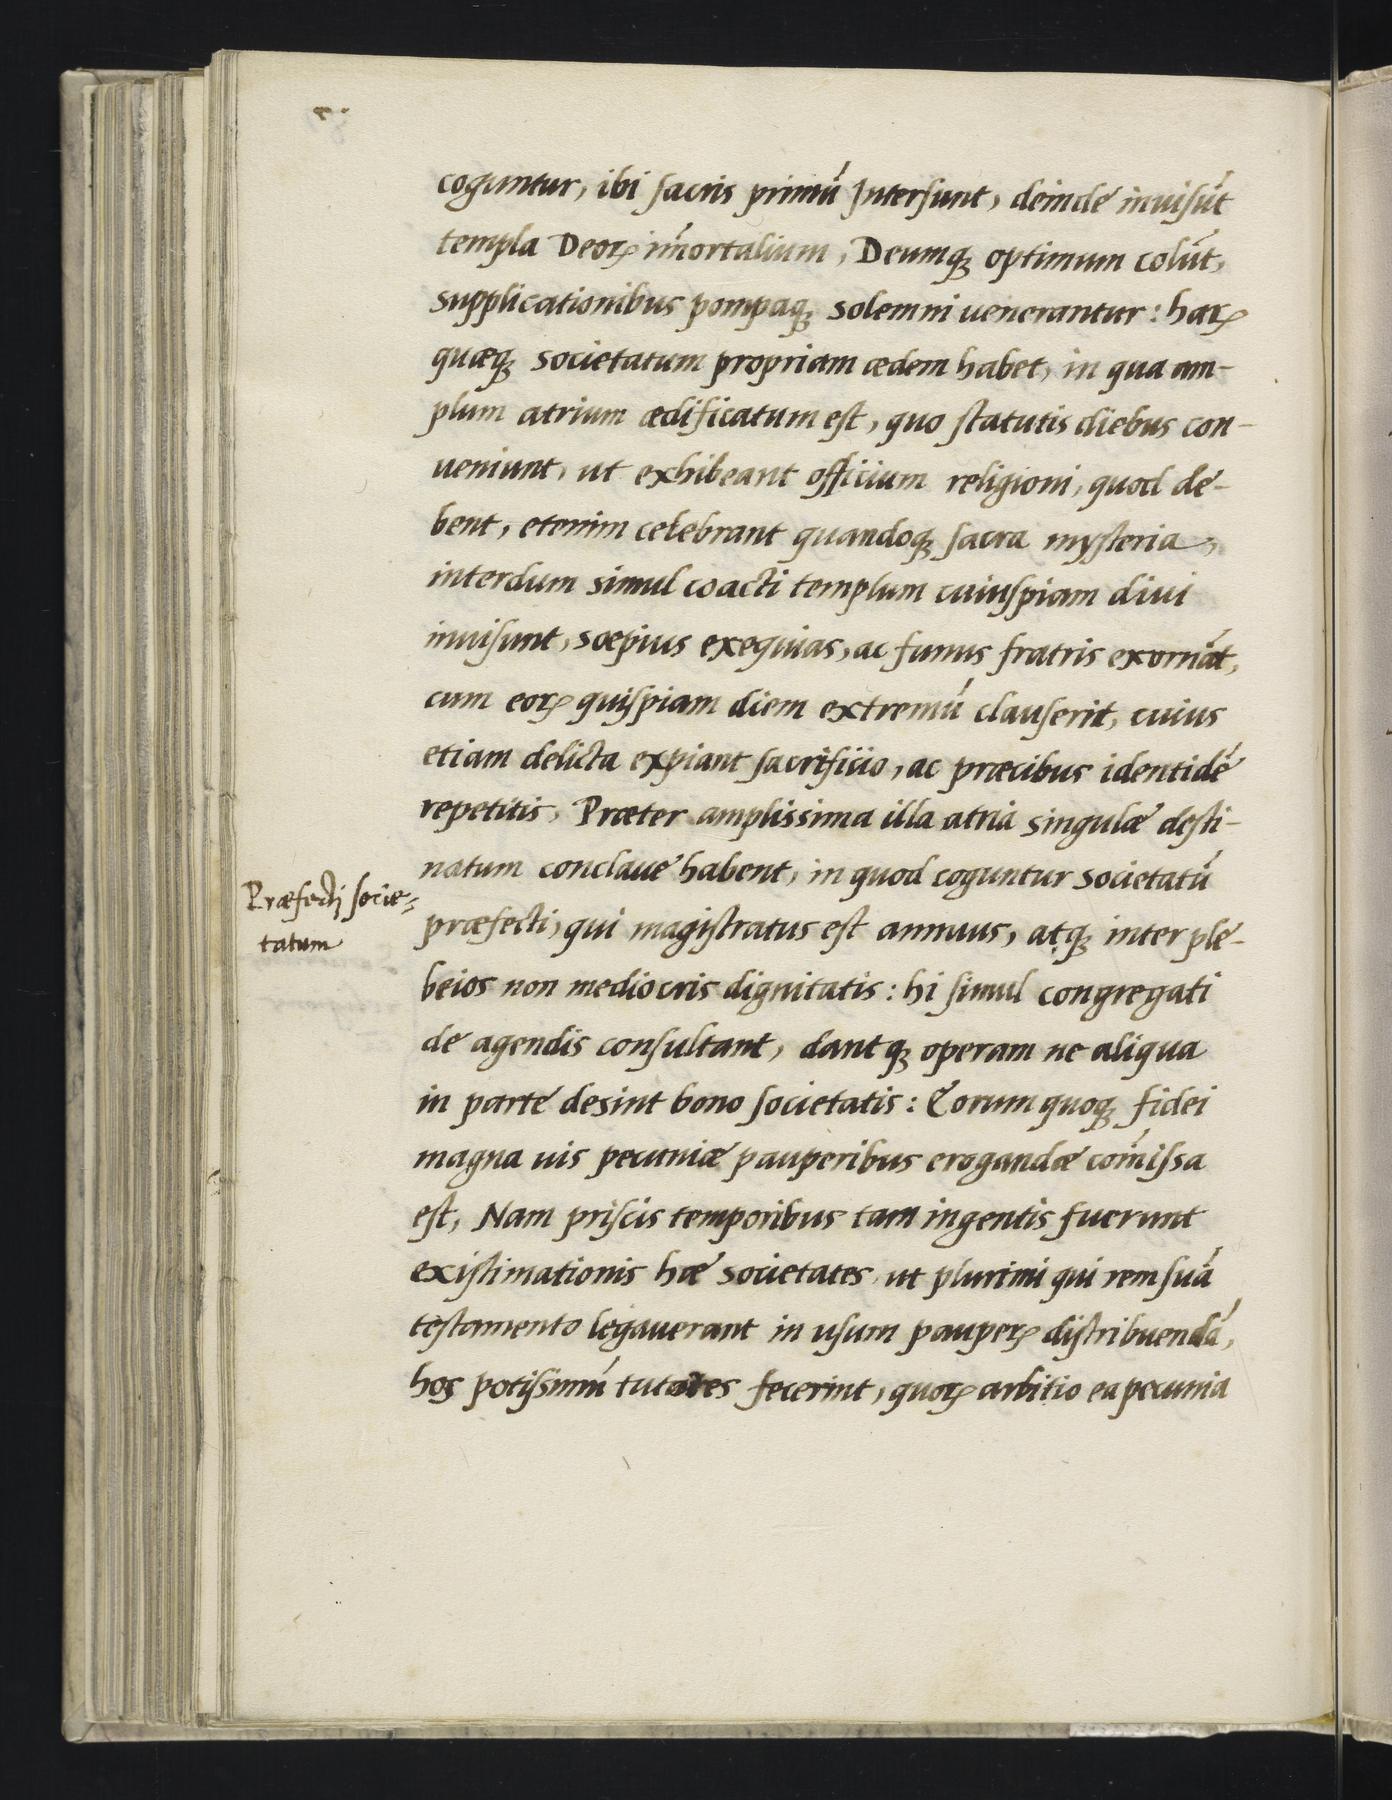 coguntur, ibi sacris primú Intersunt, deinde inuisút
templa Deorꝝ im̃ortalium, Deumqꝫ optimum colút,
supplicationibus pompaqꝫ solemni uenerantur: harꝝ
quæqꝫ societatum propriam ædem habet, in qua am-
plum atrium ædificatum est, quo statutis diebus con-
ueniunt, ut exhibeant officium religioni, quod de-
bent, etenim celebrant quandoqꝫ sacra mysteria,
interdum simul coacti templum cuiuspiam diui
inuisunt, sæpius exequias, ac funus fratris exornát,
cum eorꝝ quispiam diem extremú clauserit, cuius
etiam delicta expiant sacrificio, ac præcibus identidé
repetitis, Præter amplissima illa atria singulæ desti-
natum conclaue habent, in quod coguntur societatú
Præfecti socie=
tatum
præfecti, qui magistratus est annuus, atqꝫ inter ple-
beios non mediocris dignitatis: hi simul congregati
de agendis consultant, dantqꝫ operam ne aliqua
in parte desint bono societatis: Eorum quoqꝫ fidei
magna uis pecuniæ pauperibus erogandæ com̃issa
est, Nam priscis temporibus tam ingentis fuerunt
existimationis hæ societates, ut plurimi qui rem suá
testamento legauerant in usum pauperꝝ distribuendá,
hos potissimú tutores fecerint, quorꝝ arbitio ea pecunia